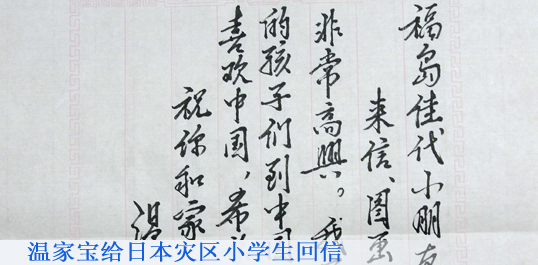 福岛佳代小朋友
来信、图画
非常高興。我
的孩子们到中国
喜欢中国，希
祝你和家
温
温家宝给日本灾区小学生回信